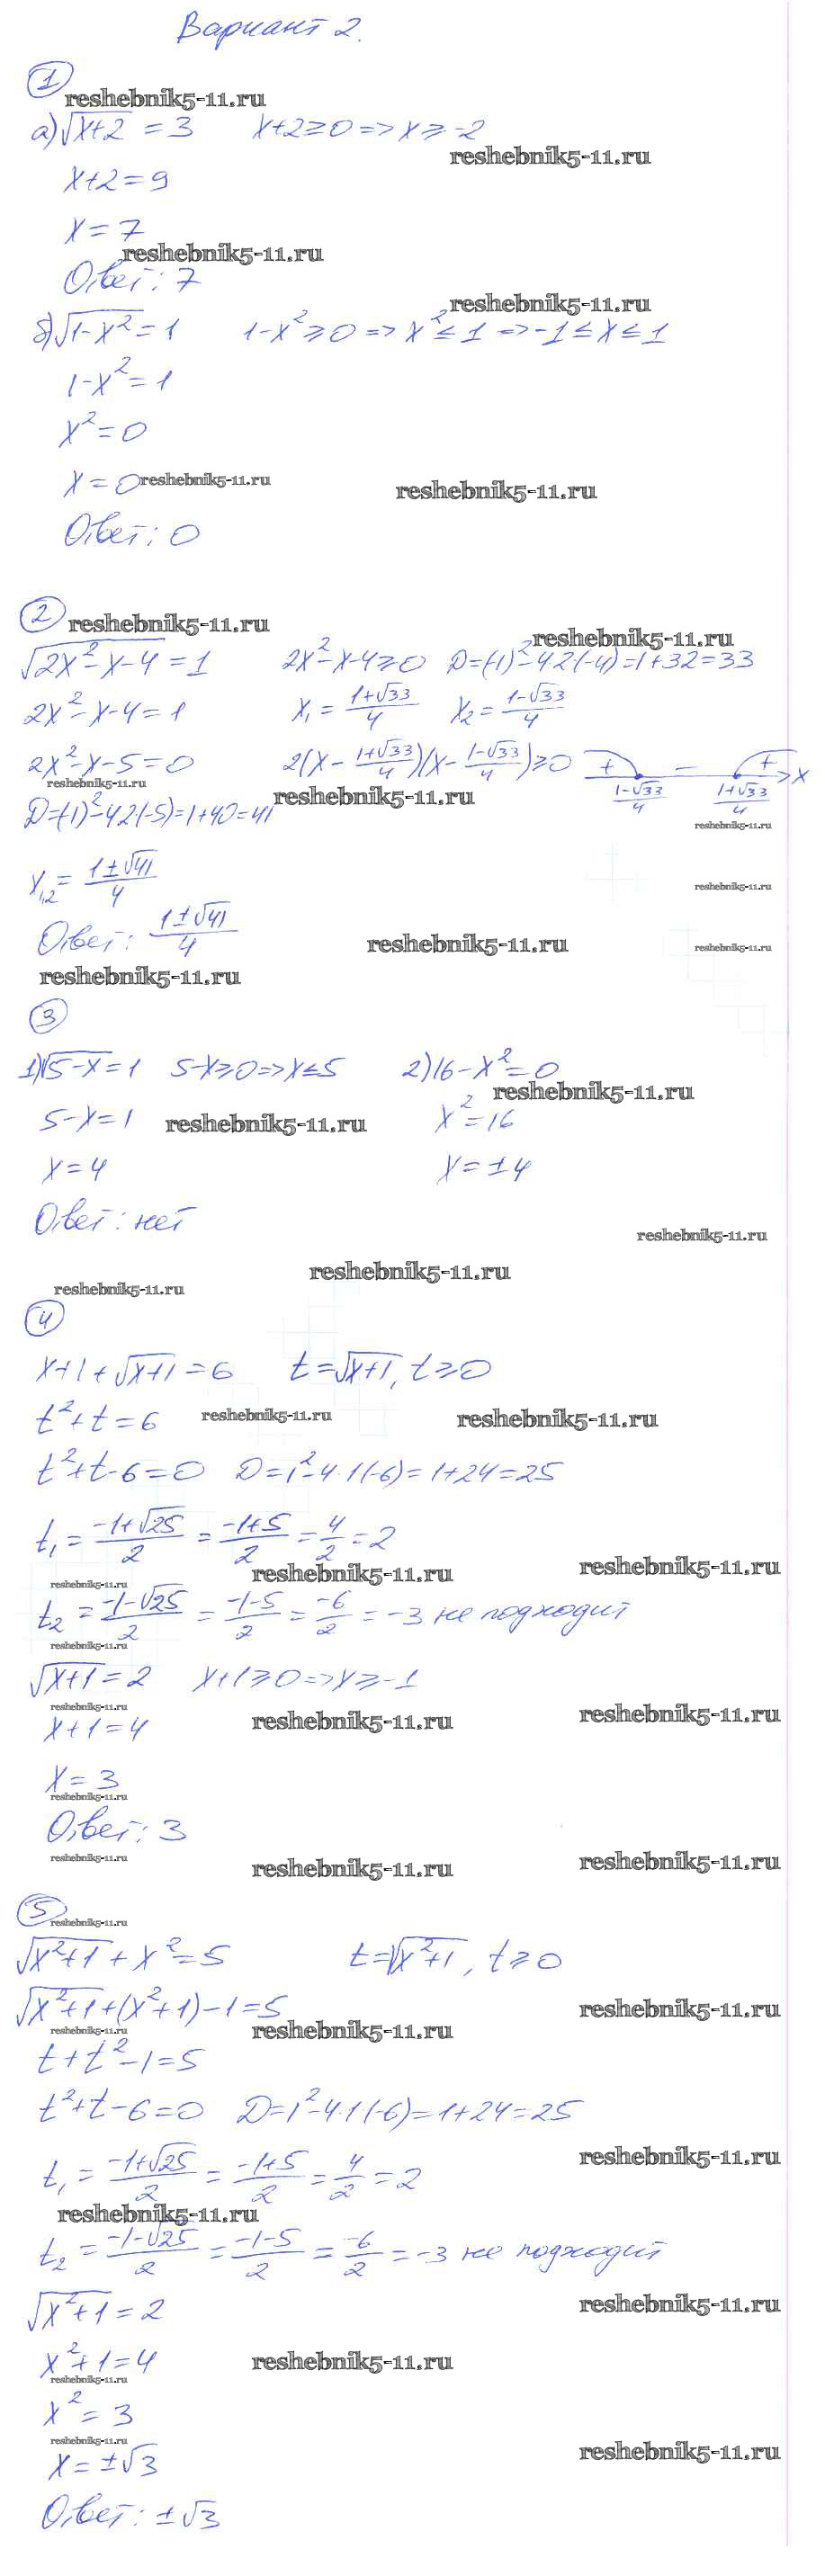 Вариант 2.
1
reshebnik5-11.ru
а) √(x+2) = 3   x+2≥0 => x≥-2
reshebnik5-11.ru
x+2=9
x=7
reshebnik5-11.ru
Ответ: 7
reshebnik5-11.ru
б) √(1-x²) = 1   1-x²≥0 => x²≤1 => -1≤x≤1
1-x²=1
x²=0
x=0 reshebnik5-11.ru
reshebnik5-11.ru
Ответ: 0
2 reshebnik5-11.ru
reshebnik5-11.ru
√(2x²-x-4) = 1   2x²-x-4≥0   D=(-1)²-4·2·(-4)=1+32=33
2x²-x-4=1   x₁ = (1+√33)/4   x₂ = (1-√33)/4
2x²-x-5=0   2(x - (1+√33)/4)(x - (1-√33)/4)≥0   + - + x
(1-√33)/4   (1+√33)/4
reshebnik5-11.ru
reshebnik5-11.ru
D=(-1)²-4·2·(-5)=1+40=41
reshebnik5-11.ru
x₁,₂ = (1±√41)/4
reshebnik5-11.ru
Ответ: (1±√41)/4
reshebnik5-11.ru
reshebnik5-11.ru
reshebnik5-11.ru
3
1) √(5-x) = 1   5-x≥0 => x≤5   2) 16-x²=0
reshebnik5-11.ru
5-x=1   reshebnik5-11.ru   x²=16
x=4   x=±4
Ответ: нет
reshebnik5-11.ru
reshebnik5-11.ru
reshebnik5-11.ru
4
x+1+√(x+1) = 6   t=√(x+1), t≥0
t²+t=6   reshebnik5-11.ru   reshebnik5-11.ru
t²+t-6=0   D=1²-4·1·(-6)=1+24=25
t₁ = (-1+√25)/2 = (-1+5)/2 = 4/2 = 2
reshebnik5-11.ru   reshebnik5-11.ru
reshebnik5-11.ru
t₂ = (-1-√25)/2 = (-1-5)/2 = -6/2 = -3 не подходит
reshebnik5-11.ru
√(x+1) = 2   x+1≥0 => x≥-1
reshebnik5-11.ru
x+1=4   reshebnik5-11.ru   reshebnik5-11.ru
x=3
reshebnik5-11.ru
Ответ: 3
reshebnik5-11.ru   reshebnik5-11.ru   reshebnik5-11.ru
5
reshebnik5-11.ru
√(x²+1) + x² = 5   t=√(x²+1), t≥0
√(x²+1) + (x²+1) - 1 = 5   reshebnik5-11.ru
reshebnik5-11.ru   reshebnik5-11.ru
t+t²-1=5
t²+t-6=0   D=1²-4·1·(-6)=1+24=25
t₁ = (-1+√25)/2 = (-1+5)/2 = 4/2 = 2   reshebnik5-11.ru
reshebnik5-11.ru
t₂ = (-1-√25)/2 = (-1-5)/2 = -6/2 = -3 не подходит
√(x²+1) = 2   reshebnik5-11.ru
x²+1=4   reshebnik5-11.ru
reshebnik5-11.ru
x²=3
reshebnik5-11.ru
x=±√3   reshebnik5-11.ru
Ответ: ±√3